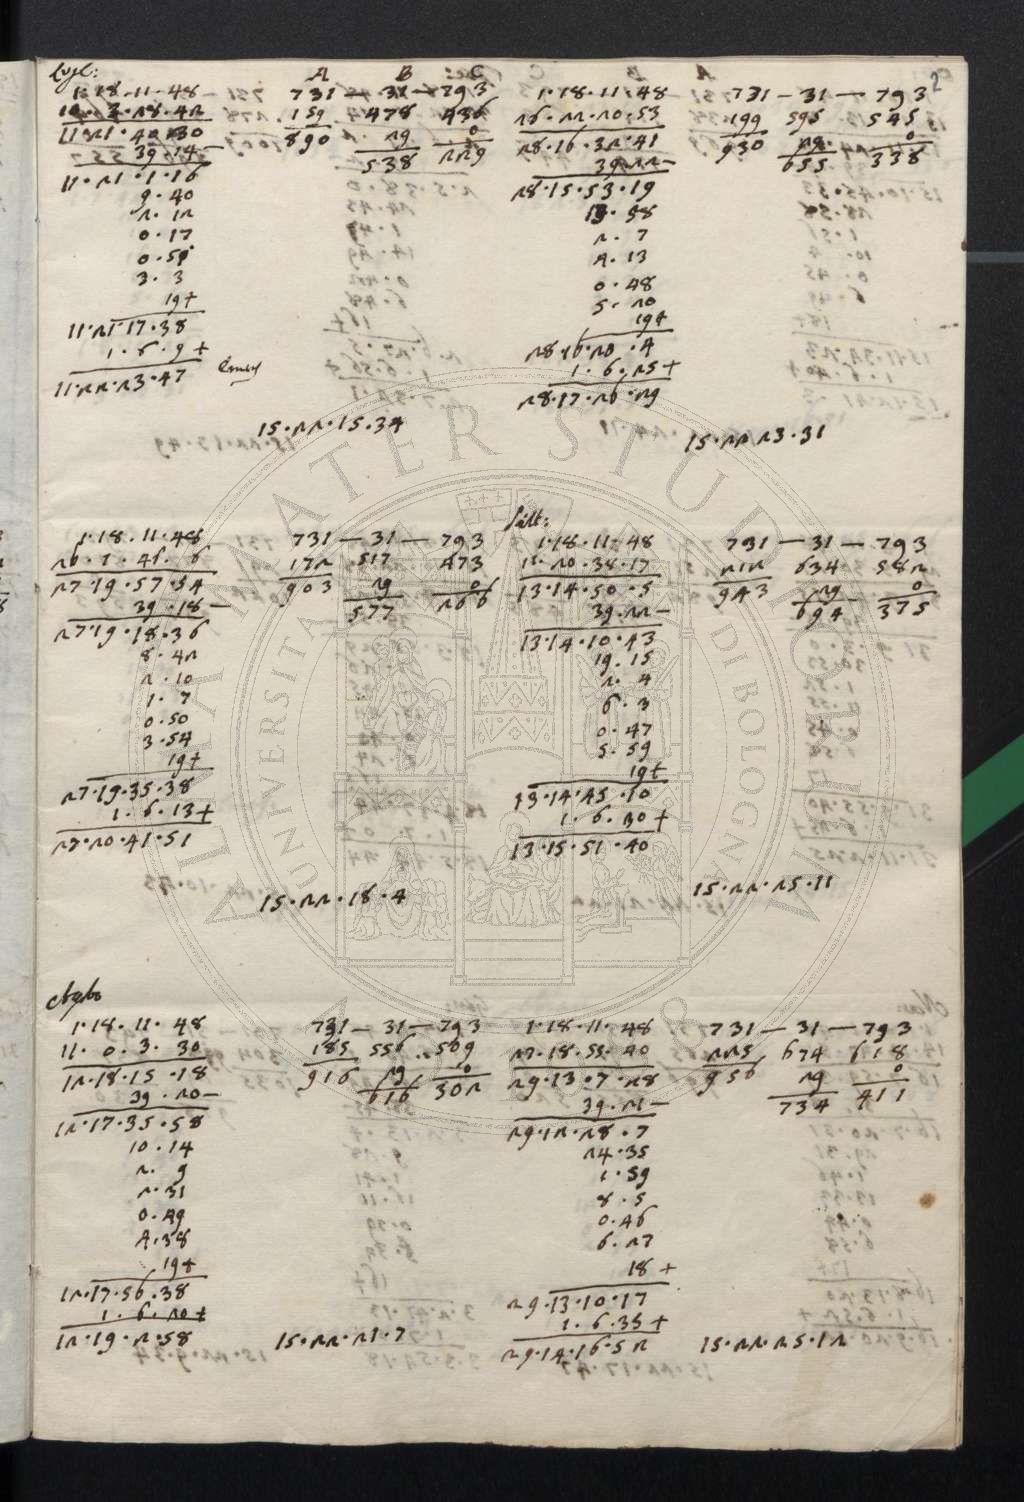 Lugl:
A B C
1.18.11.48 — 731 — 31 — 793
10.3.28.42 159 478 436
11.21.40.30 890 29 0
39.14 — 538 229
11.21.1.16
9.40
2.12
0.17
0.51
3.3
19+
11.21.17.38
1.6.9+
11.22.23.47
15.22.15.34
2
1.18.11.48 731 — 31 — 793
26.22.20.53 199 595 545
28.16.32.41 930 29 0
39.22 — 655 338
28.15.53.19
13.58
2.7
4.13
0.48
5.20
19+
28.16.20.4
1.6.25+
28.17.26.29
15.22.23.31
1.18.11.48 731 — 31 — 793
26.1.46.6 172 517 473
27.19.57.54 903 29 0
39.18 — 577 266
27.19.18.36
8.42
2.10
1.7
0.50
3.54
19+
27.19.35.38
1.6.13+
27.20.41.51
15.22.18.4
1.18.11.48 731 — 31 — 793
11.20.38.17 212 634 582
13.14.50.5 943 29 0
39.22 — 694 375
13.14.10.43
19.15
2.4
6.3
0.47
5.59
19+
13.14.45.10
1.6.30+
13.15.51.40
15.22.25.11
1.18.11.48 731 — 31 — 793
11.0.3.30 185 556 509
12.18.15.18 916 29 0
39.20 — 616 302
12.17.35.58
10.14
2.9
2.31
0.49
4.38
19+
12.17.56.38
1.6.20+
12.19.2.58
15.22.21.7
1.18.11.48 731 — 31 — 793
27.18.55.40 225 674 618
29.13.7.28 956 29 0
39.21 — 734 411
29.12.28.7
24.35
1.59
8.5
0.46
6.27
18+
29.13.10.17
1.6.35+
29.14.16.52
15.22.25.12
ALMA MATER STUDIORUM
UNIVERSITÀ DI BOLOGNA